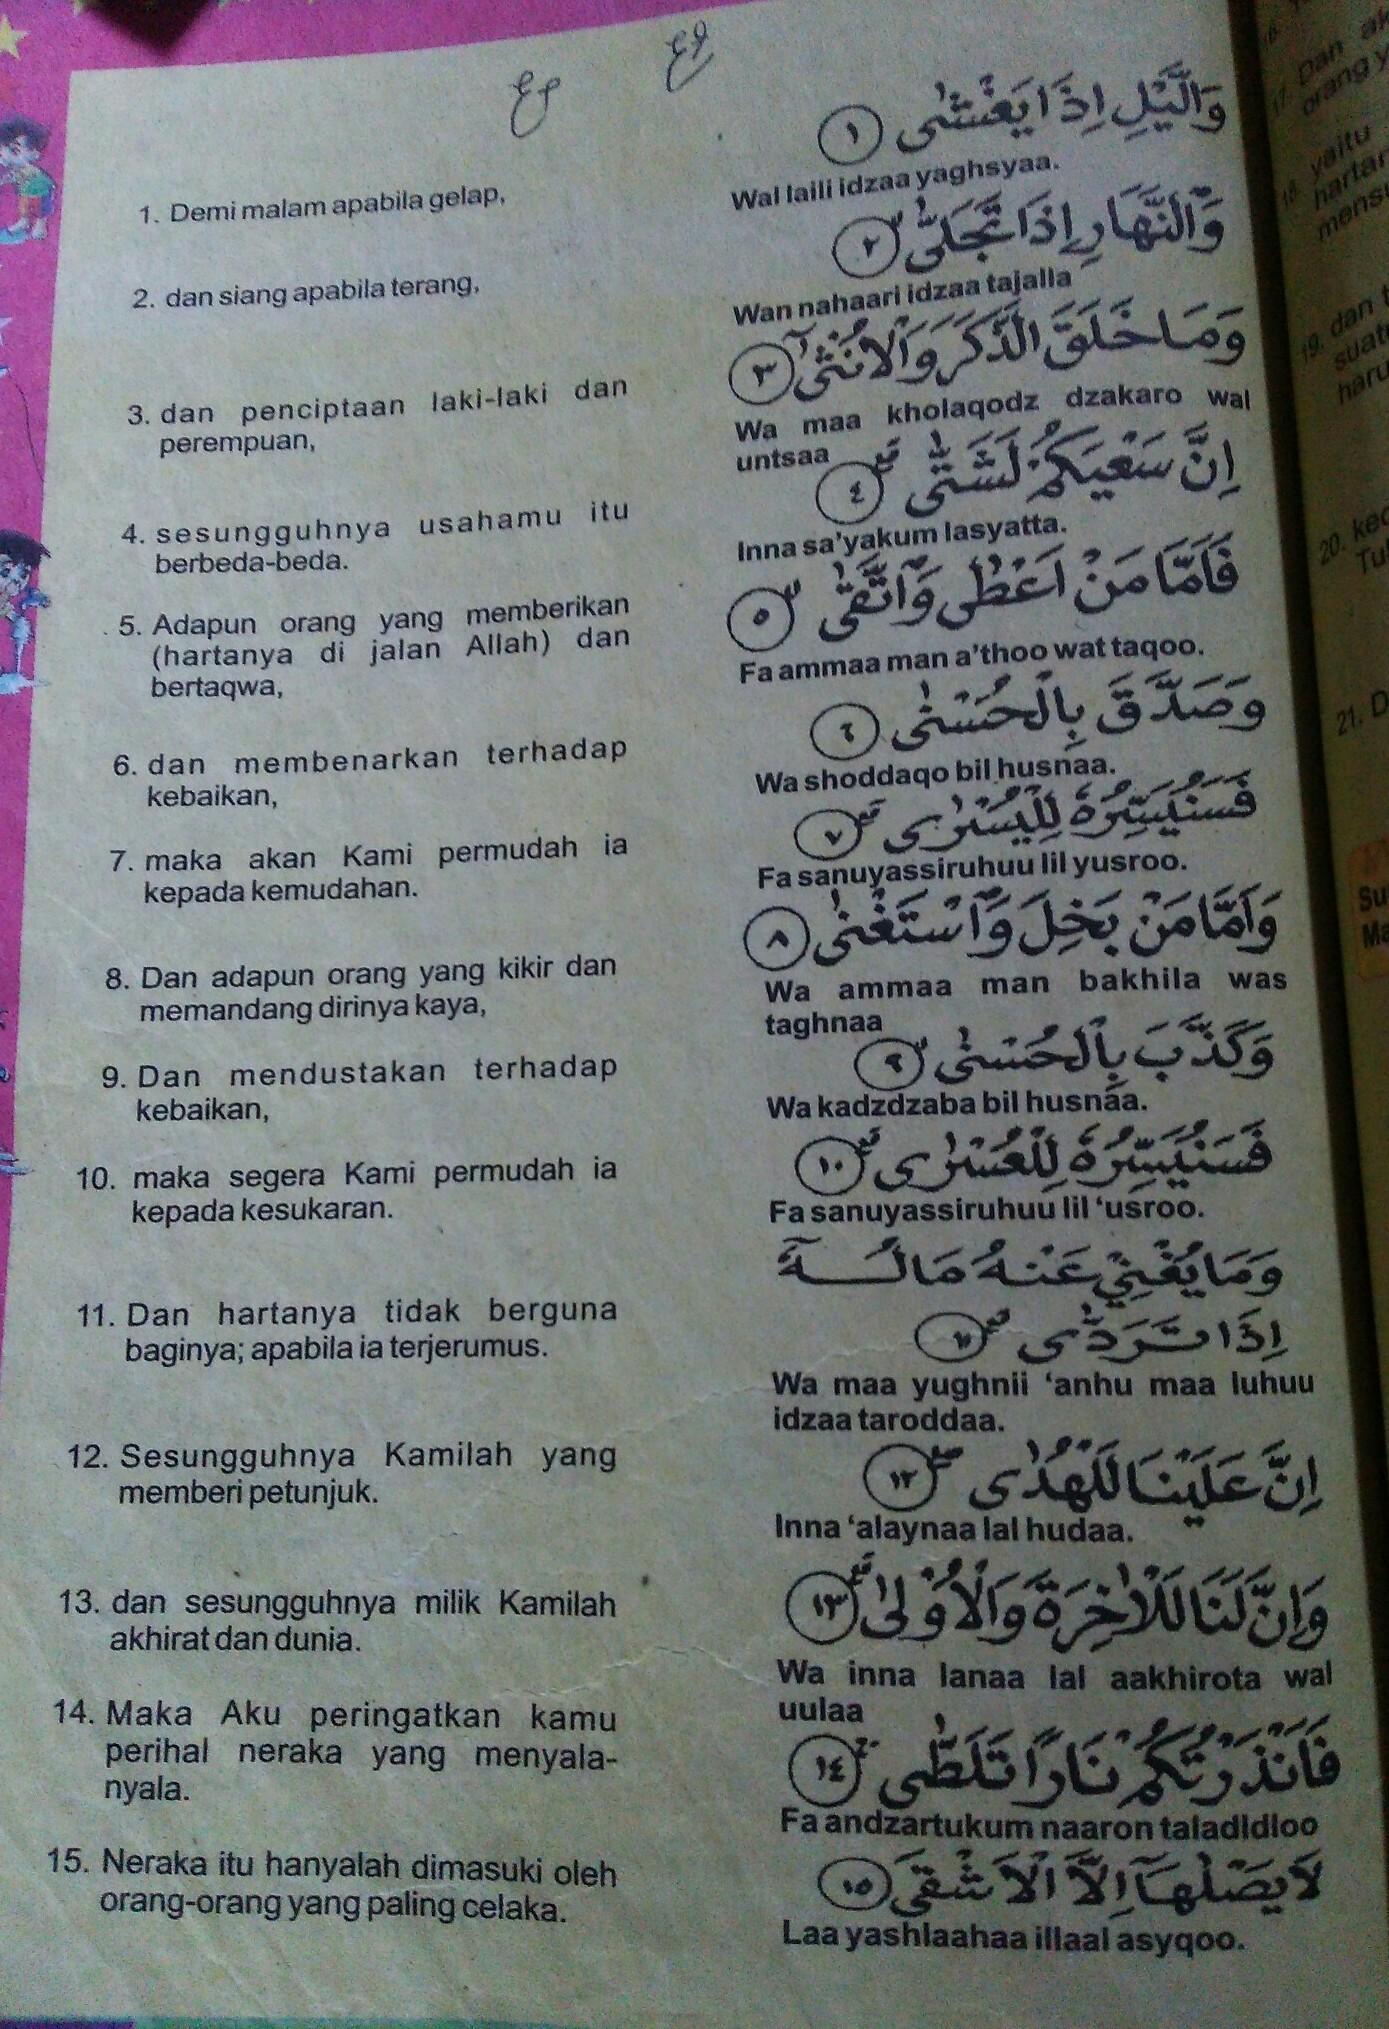 وَالَّيْلِ اِذَا يَغْشٰى ١
Wal laili idzaa yaghsyaa.
1. Demi malam apabila gelap,
وَالنَّهَارِ اِذَا تَجَلّٰىۙ ٢
Wan nahaari idzaa tajalla
2. dan siang apabila terang,
وَمَا خَلَقَ الذَّكَرَ وَالْاُنْثٰىٓۙ ٣
Wa maa kholaqodz dzakaro wal
untsaa
3. dan penciptaan laki-laki dan
perempuan,
اِنَّ سَعْيَكُمْ لَشَتّٰىۗ ٤
Inna sa'yakum lasyatta.
4. sesungguhnya usahamu itu
berbeda-beda.
فَاَمَّا مَنْ اَعْطٰى وَاتَّقٰىۙ ٥
Fa ammaa man a'thoo wat taqoo.
5. Adapun orang yang memberikan
(hartanya di jalan Allah) dan
bertaqwa,
وَصَدَّقَ بِالْحُسْنٰى ٦
Wa shoddaqo bil husnaa.
6. dan membenarkan terhadap
kebaikan,
فَسَنُيَسِّرُهٗ لِلْيُسْرٰىۗ ٧
Fa sanuyassiruhuu lil yusroo.
7. maka akan Kami permudah ia
kepada kemudahan.
وَاَمَّا مَنْ بَخِلَ وَاسْتَغْنٰى ٨
Wa ammaa man bakhila was
taghnaa
8. Dan adapun orang yang kikir dan
memandang dirinya kaya,
وَكَذَّبَ بِالْحُسْنٰىۙ ٩
Wa kadzdzaba bil husnaa.
9. Dan mendustakan terhadap
kebaikan,
فَسَنُيَسِّرُهٗ لِلْعُسْرٰىۗ ١٠
Fa sanuyassiruhuu lil 'usroo.
10. maka segera Kami permudah ia
kepada kesukaran.
وَمَا يُغْنِيْ عَنْهُ مَالُهٗٓ
اِذَا تَرَدّٰىۗ ١١
Wa maa yughnii 'anhu maa luhuu
idzaa taroddaa.
11. Dan hartanya tidak berguna
baginya; apabila ia terjerumus.
اِنَّ عَلَيْنَا لَلْهُدٰىۖ ١٢
Inna 'alaynaa lal hudaa.
12. Sesungguhnya Kamilah yang
memberi petunjuk.
وَاِنَّ لَنَا لَلْاٰخِرَةَ وَالْاُوْلٰىۗ ١٣
Wa inna lanaa lal aakhirota wal
uulaa
13. dan sesungguhnya milik Kamilah
akhirat dan dunia.
فَاَنْذَرْتُكُمْ نَارًا تَلَظّٰىۚ ١٤
Fa andzartukum naaron taladldloo
14. Maka Aku peringatkan kamu
perihal neraka yang menyala-
nyala.
لَا يَصْلٰىهَآ اِلَّا الْاَشْقَى ١٥
Laa yashlaahaa illaal asyqoo.
15. Neraka itu hanyalah dimasuki oleh
orang-orang yang paling celaka.
17. Dan
orang
18. yaitu
19. dan
20.
21.